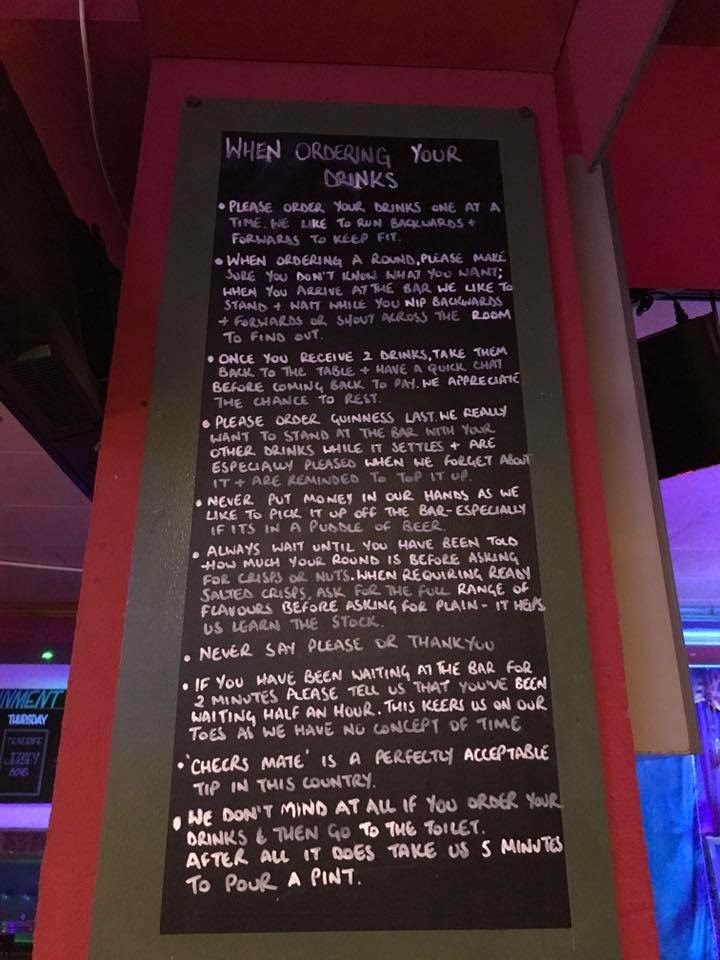 WHEN ORDERING YOUR
DRINKS
• PLEASE ORDER YOUR DRINKS ONE AT A
TIME. WE LIKE TO RUN BACKWARDS +
FORWARDS TO KEEP FIT.
• WHEN ORDERING A ROUND, PLEASE MAKE
SURE YOU DON'T KNOW WHAT YOU WANT;
WHEN YOU ARRIVE AT THE BAR WE LIKE TO
STAND + WAIT WHILE YOU NIP BACKWARDS
+ FORWARDS OR SHOUT ACROSS THE ROOM
TO FIND OUT.
• ONCE YOU RECEIVE 2 DRINKS, TAKE THEM
BACK TO THE TABLE + HAVE A QUICK CHAT
BEFORE COMING BACK TO PAY. WE APPRECIATE
THE CHANCE TO REST.
• PLEASE ORDER GUINNESS LAST. WE REALLY
WANT TO STAND AT THE BAR WITH YOUR
OTHER DRINKS WHILE IT SETTLES + ARE
ESPECIALLY PLEASED WHEN WE FORGET ABOUT
IT + ARE REMINDED TO TOP IT UP.
• NEVER PUT MONEY IN OUR HANDS AS WE
LIKE TO PICK IT UP OFF THE BAR - ESPECIALLY
IF ITS IN A PUDDLE OF BEER.
• ALWAYS WAIT UNTIL YOU HAVE BEEN TOLD
HOW MUCH YOUR ROUND IS BEFORE ASKING
FOR CRISPS OR NUTS. WHEN REQUIRING READY
SALTED CRISPS, ASK FOR THE FULL RANGE OF
FLAVOURS BEFORE ASKING FOR PLAIN - IT HELPS
US LEARN THE STOCK.
• NEVER SAY PLEASE OR THANKYOU
• IF YOU HAVE BEEN WAITING AT THE BAR FOR
2 MINUTES PLEASE TELL US THAT YOU'VE BEEN
WAITING HALF AN HOUR. THIS KEEPS US ON OUR
TOES AS WE HAVE NO CONCEPT OF TIME
• 'CHEERS MATE' IS A PERFECTLY ACCEPTABLE
TIP IN THIS COUNTRY.
• WE DON'T MIND AT ALL IF YOU ORDER YOUR
DRINKS & THEN GO TO THE TOILET.
AFTER ALL IT DOES TAKE US 5 MINUTES
TO POUR A PINT.
INMENT
THURSDAY
TENERIFE